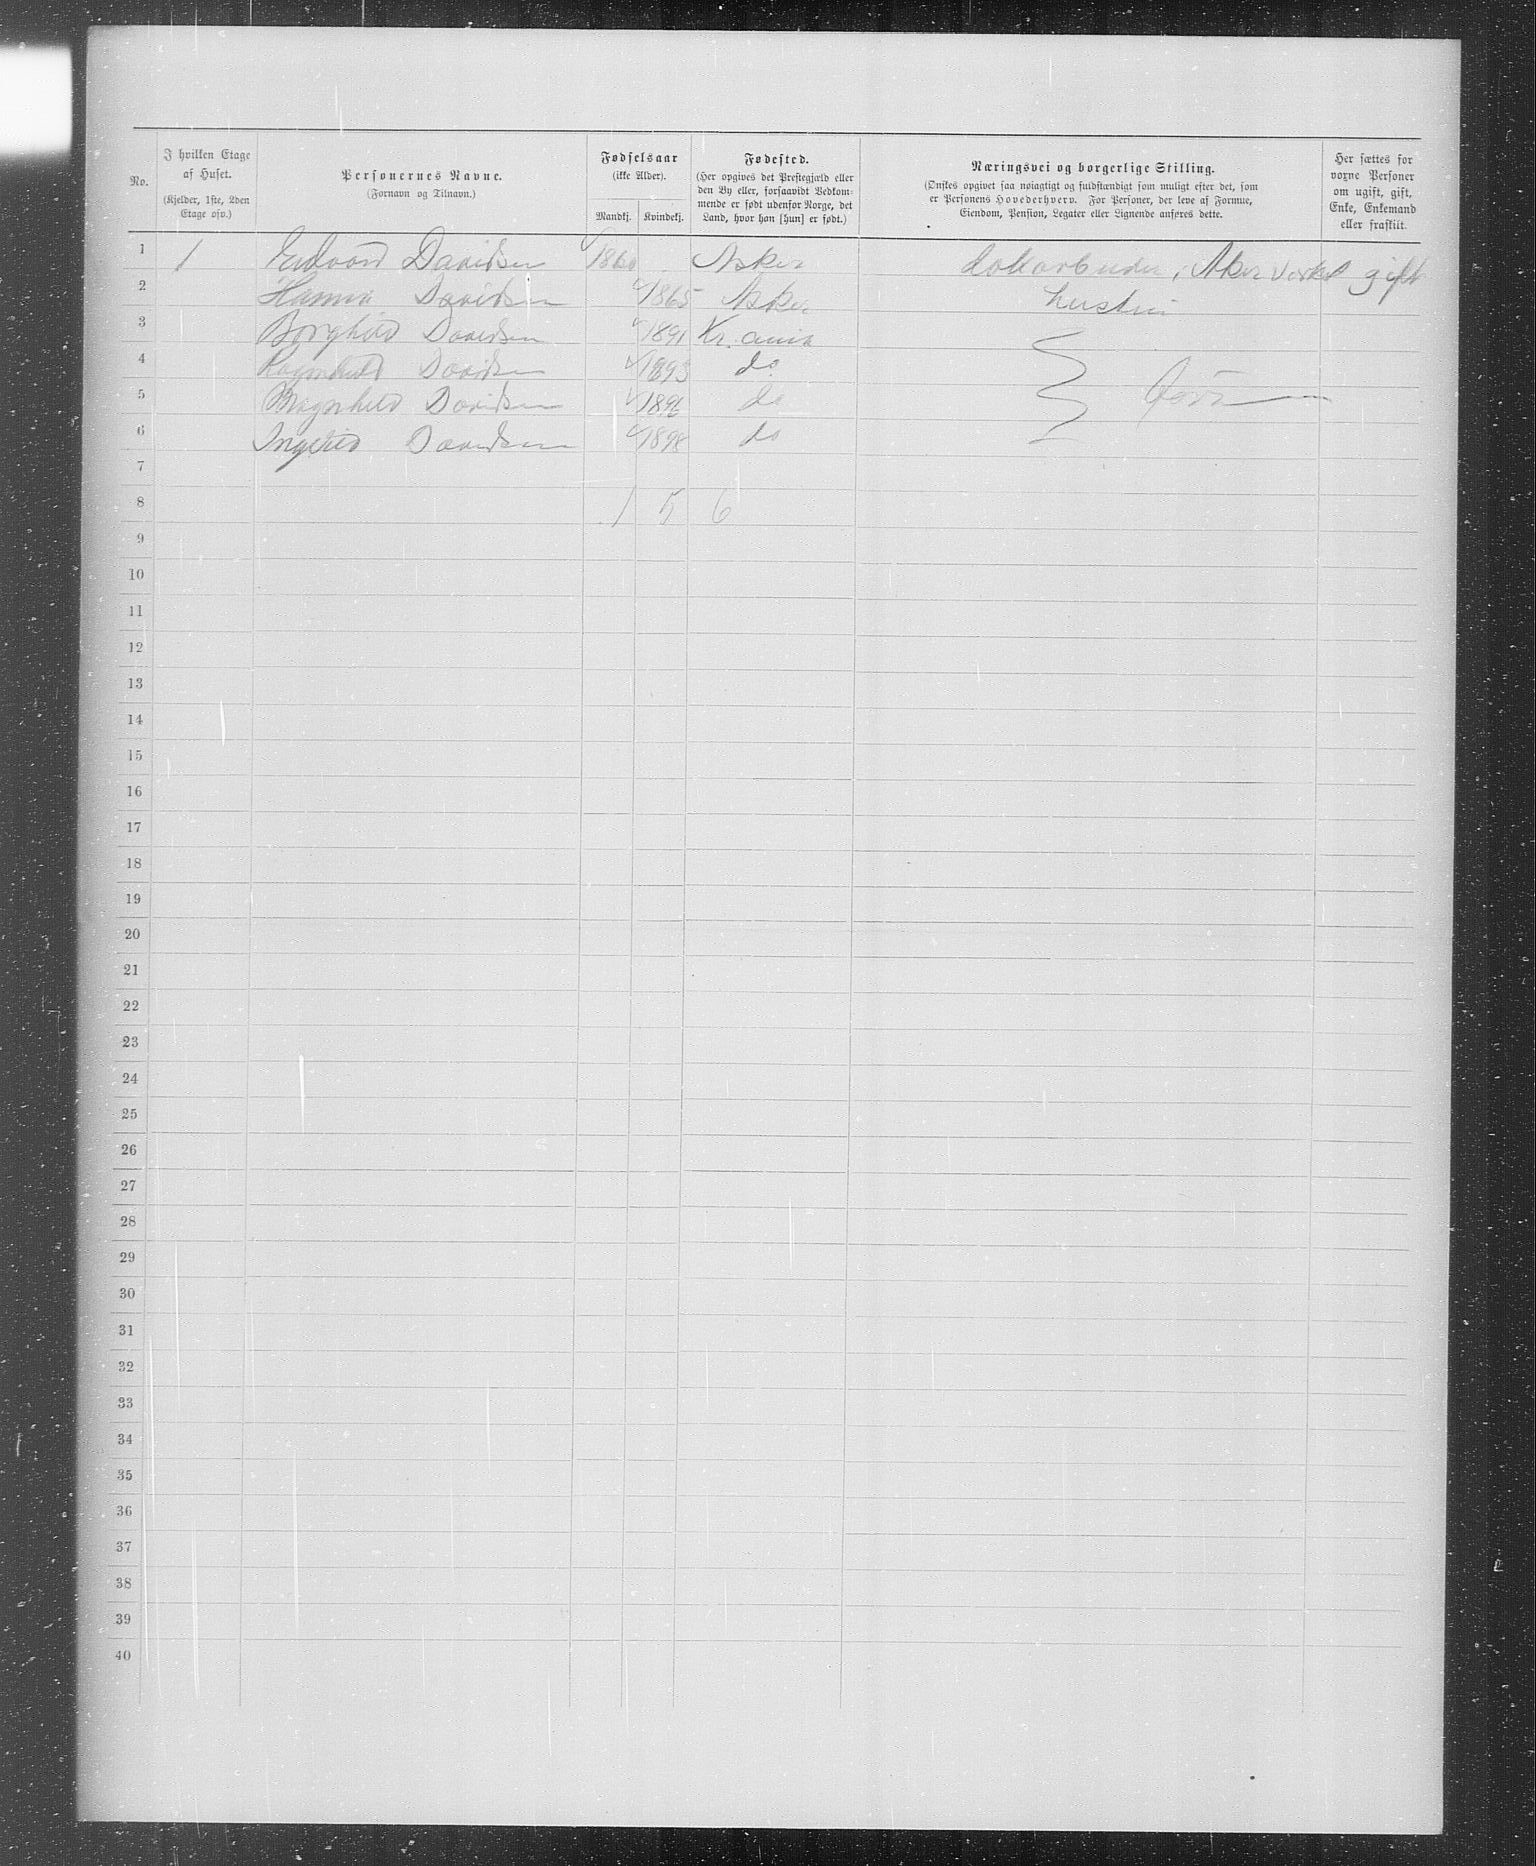 No.
I hvilken Etage af Huset.
(Kjelder, 1ste, 2den Etage osv.)
Personernes Navne.
(Fornavn og Tilnavn.)
Fødselsaar
(ikke Alder).
Mandkj. Kvindekj.
Fødested.
(Her opgives det Prestegjæld eller
den By eller, forsaavidt Vedkom-
mende er født udenfor Norge, det
Land, hvor han [hun] er født.)
Næringsvei og borgerlige Stilling.
(Ønskes opgivet saa nøiagtigt og fuldstændigt som muligt efter det, som
er Personens Hovederhverv. For Personer, der leve af Formue,
Eiendom, Pension, Legater eller Lignende anføres dette.
Her sættes for
voxne Personer
om ugift, gift,
Enke, Enkemand
eller fraskilt.
1 1 Edvard Davidsen 1860 Asker Dokarbeider, Aker gift
2 Hanna Davidsen 1865 Asker hustru
3 Borghild Davidsen 1891 Kr.ania
4 Ragnhild Davidsen 1893 do
5 Magnhild Davidsen 1896 do
6 Ingerid Davidsen 1898 do
7
8 1 5 6
9
10
11
12
13
14
15
16
17
18
19
20
21
22
23
24
25
26
27
28
29
30
31
32
33
34
35
36
37
38
39
40